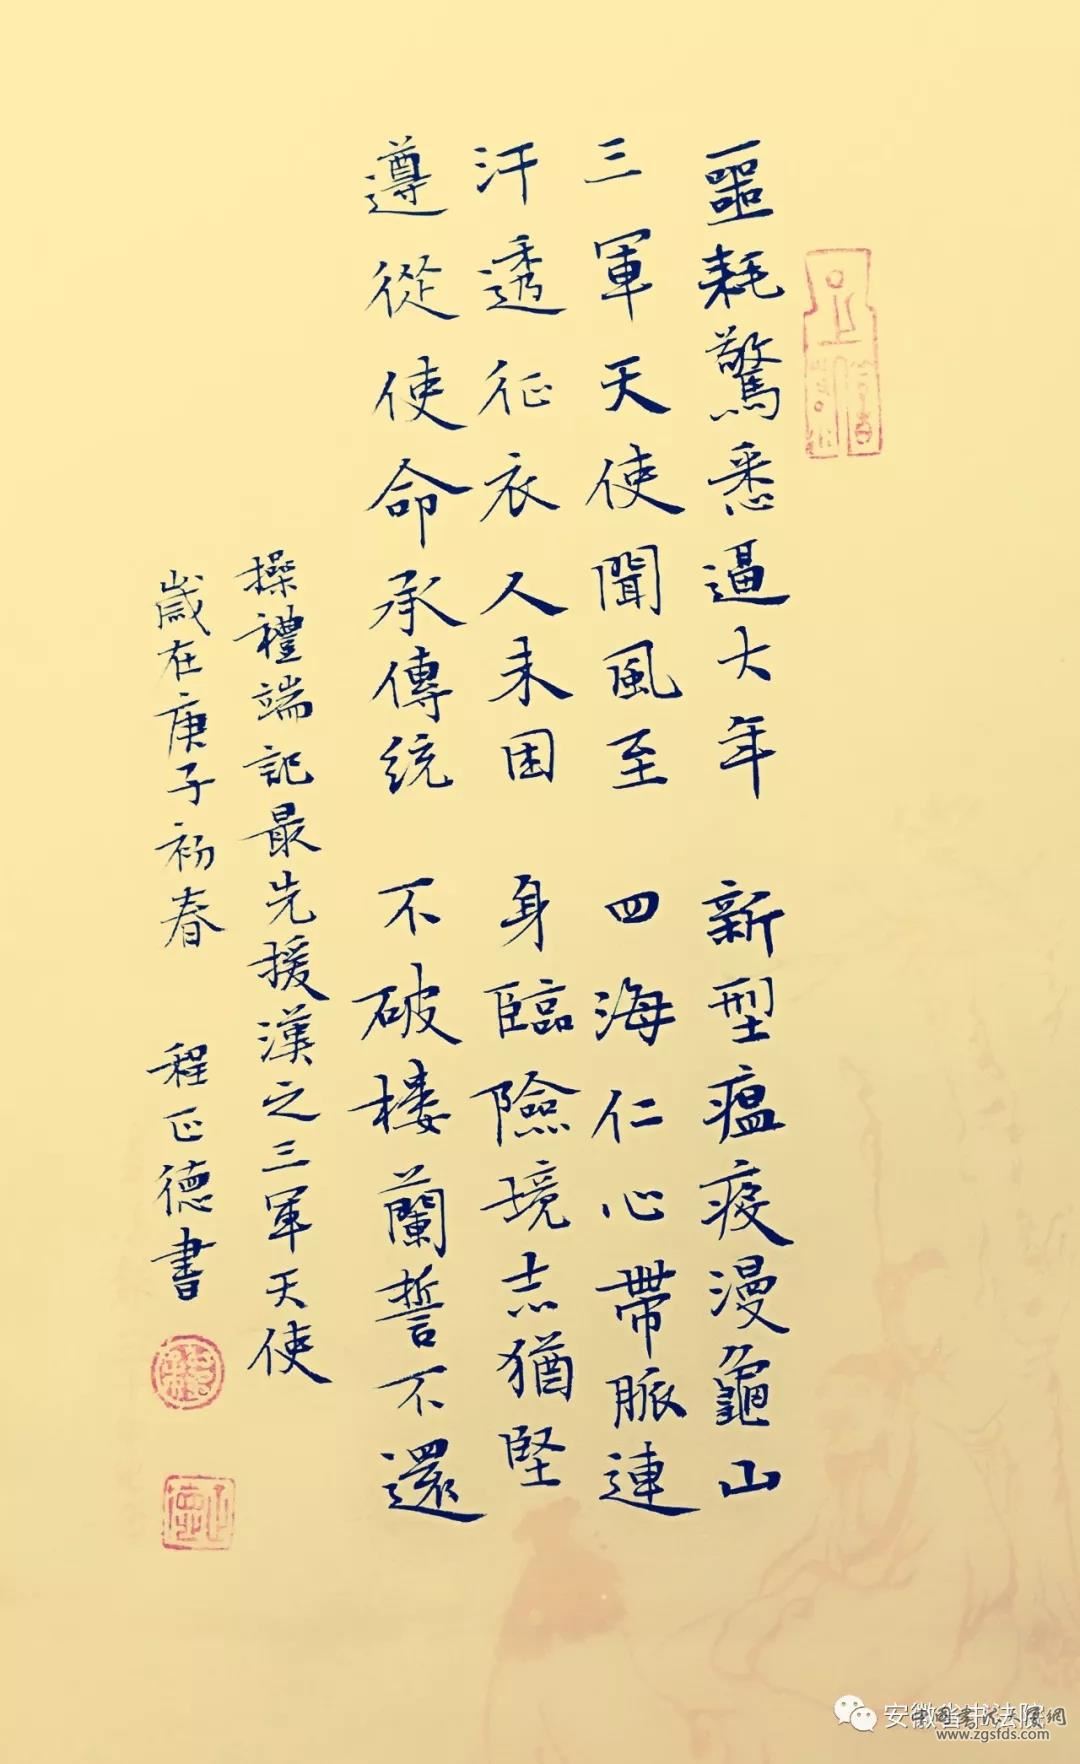 噩耗驚悉逼大年 新型瘟疫漫龜山
三軍天使聞風至 四海仁心帶脈連
汗透征衣人未困 身臨險境志猶堅
遵從使命承傳統 不破樓蘭誓不還
操禮端記最先援漢之三軍天使
歲在庚子初春 程正德書
安徽省书法院
www.zgsfds.com